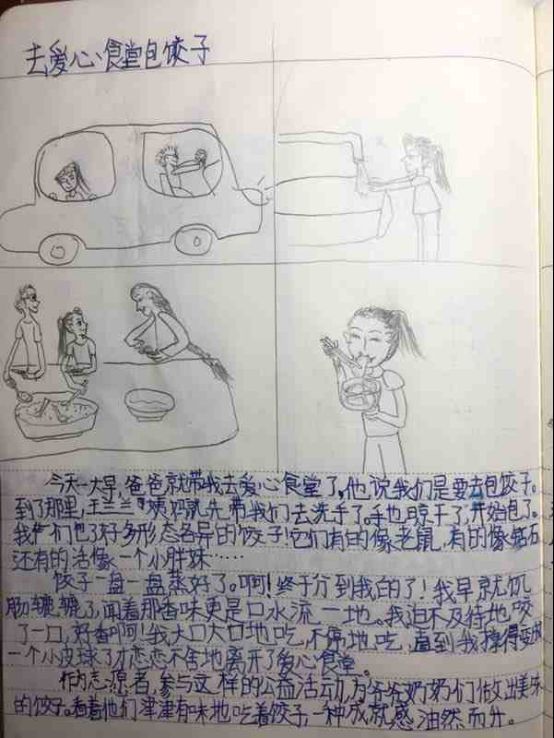 去爱心食堂包饺子
今天一大早,爸爸就带我去爱心食堂了。他说我们是要去包饺子。
到了那里,王兰兰姨妈就先带我们去洗手了。手也晾干了,开始包了。
我们包了好多形态各异的饺子!它们有的像老鼠,有的像钻石
还有的活像一个小胖妹……
饺子一盘一盘蒸好了。啊!终于分到我的了!我早就饥
肠辘辘了,闻着那香味更是口水流一地。我迫不及待地咬
了一口,好香啊!我大口大口地吃,不停地吃,直到我撑得变成
一个小皮球了才恋恋不舍地离开了爱心食堂。
作为志愿者,参与这样的公益活动,为爷爷奶奶们做出美味
的饺子。看着他们津津有味地吃着饺子,一种成就感油然而升。